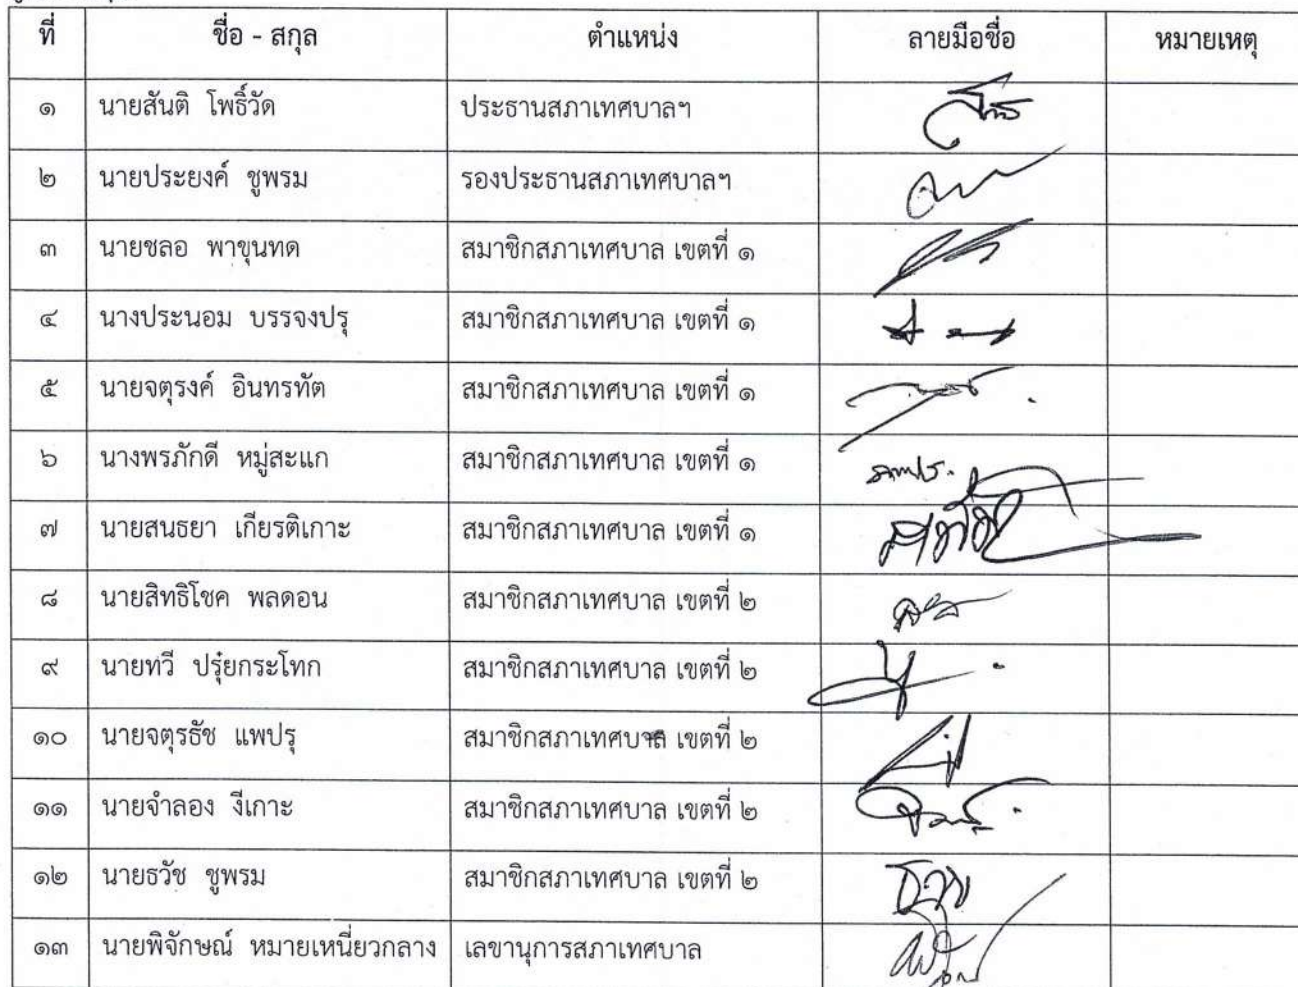 ที่ ชื่อ - สกุล ตำแหน่ง ลายมือชื่อ หมายเหตุ
๑ นายสันติ โพธิ์วัด ประธานสภาเทศบาลฯ
๒ นายประยงค์ ชูพรม รองประธานสภาเทศบาลฯ
๓ นายชลอ พาขุนทด สมาชิกสภาเทศบาล เขตที่ ๑
๔ นางประนอม บรรจงปรุ สมาชิกสภาเทศบาล เขตที่ ๑
๕ นายจตุรงค์ อินทรทัต สมาชิกสภาเทศบาล เขตที่ ๑
๖ นางพรภักดี หมู่สะแก สมาชิกสภาเทศบาล เขตที่ ๑
๗ นายสนธยา เกียรติเกาะ สมาชิกสภาเทศบาล เขตที่ ๑
๘ นายสิทธิโชค พลดอน สมาชิกสภาเทศบาล เขตที่ ๒
๙ นายทวี ปรุ๋ยกระโทก สมาชิกสภาเทศบาล เขตที่ ๒
๑๐ นายจตุรธัช แพปรุ สมาชิกสภาเทศบาล เขตที่ ๒
๑๑ นายจำลอง งีเกาะ สมาชิกสภาเทศบาล เขตที่ ๒
๑๒ นายธวัช ชูพรม สมาชิกสภาเทศบาล เขตที่ ๒
๑๓ นายพิจักษณ์ หมายเหนี่ยวกลาง เลขานุการสภาเทศบาล